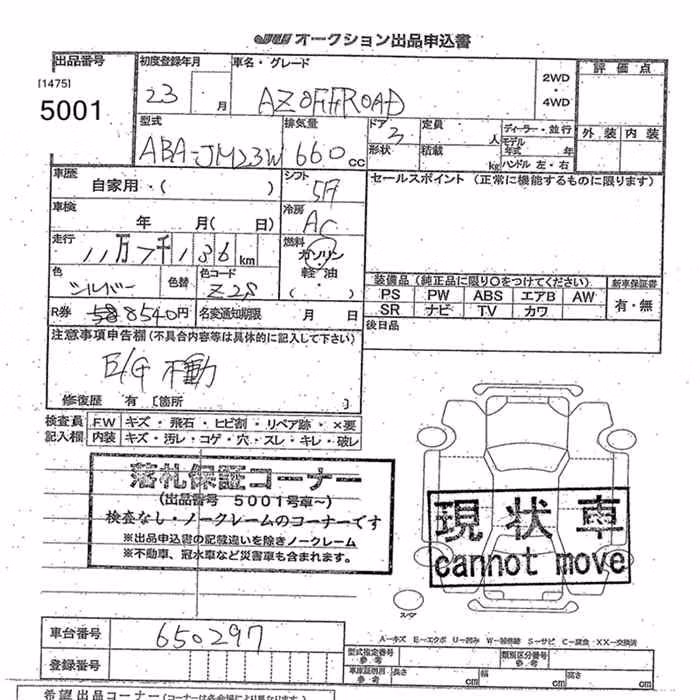 JU オークション出品申込書
出品番号 初度登録年月 車名・グレード 評価点
[1475]
5001
23 月 AZ OFFROAD 2WD ・ 4WD
外装 内装
型式 排気量 ドア 定員 ディーラー・並行
ABA-JM23W 660 cc 3 人 モデル年式 年
形状 積載 kg ハンドル 左・右
車歴 シフト セールスポイント (正常に機能するものに限ります)
自家用・( ) 5F
車検 冷房
年 月( 日) AC
走行 燃料
11万7千136km ガソリン
軽油
( )
色 色替 色コード
シルバー Z2S
装備品(純正品に限り○をつけてください) 新車保証書
PS PW ABS エアB AW 有・無
SR ナビ TV カワ
R券 8540円 名変通知期限 月 日
後日品
注意事項申告欄(不具合内容等は具体的に記入して下さい)
E/G 不動
修復歴 有 [箇所 ]
検査員 F.W キズ・飛石・ヒビ割・リペア跡・×要
記入欄 内装 キズ・汚レ・コゲ・穴・スレ・キレ・破レ
落札保証コーナー
(出品番号 5001号車~)
検査なし・ノークレームのコーナーです
※出品申込書の記載違いを除きノークレーム
※不動車、冠水車など災害車も含まれます。
現状車
cannot move
スペア
A-キズ E-エクボ U-凹み W-補修跡 S-サビ C-腐食 XX-交換済
車台番号 650297
型式指定番号 参考 類別区分番号 参考
登録番号
車庫証明用 参考 長さ cm 幅 cm 高さ cm
希望出品コーナー(コーナーは各会場により異なります)